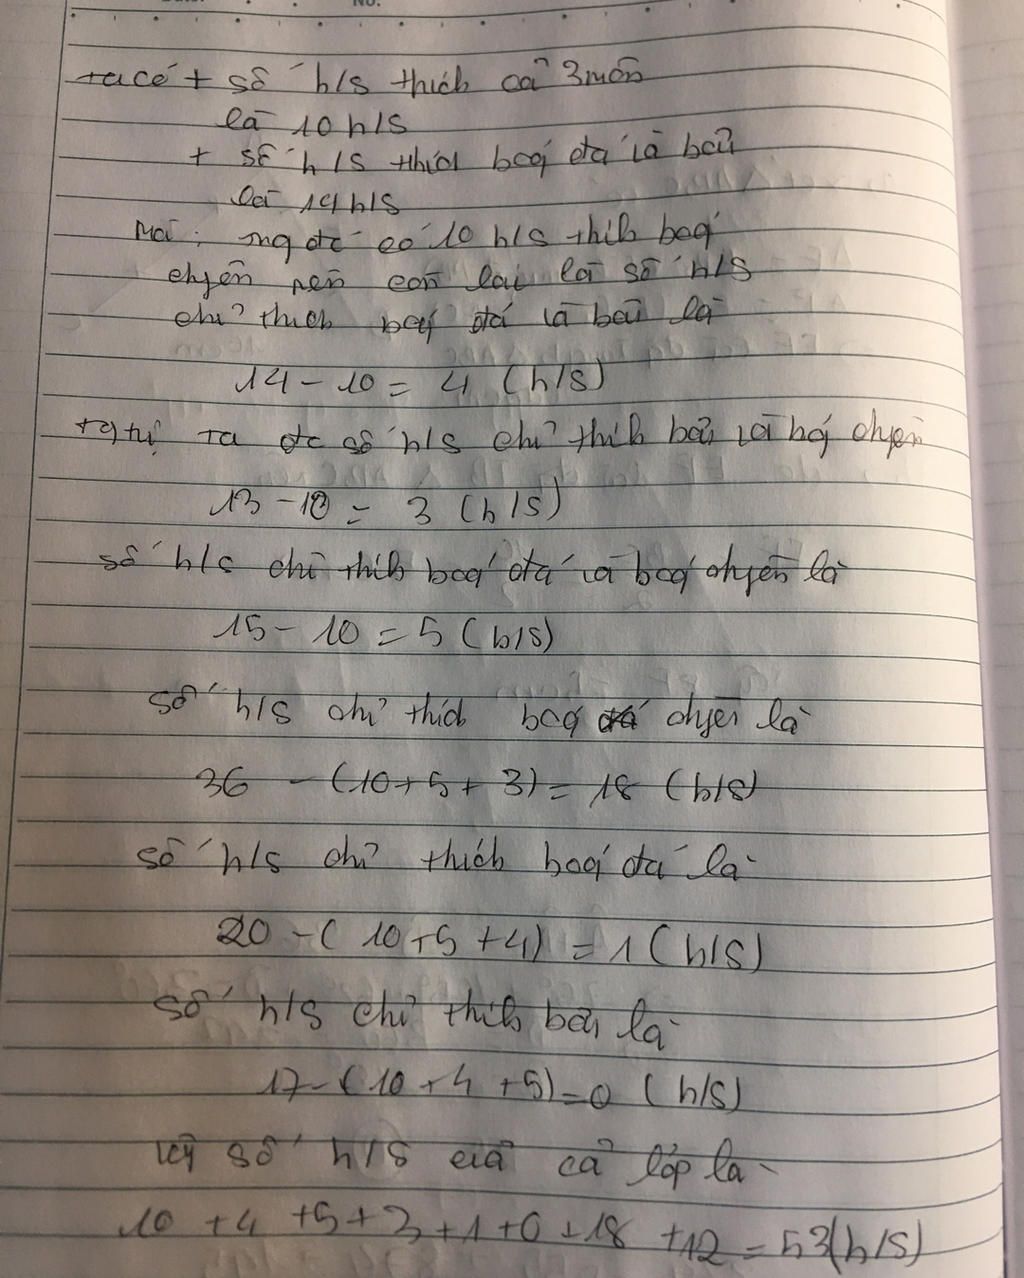 ta có + số h/s thích cả 3 môn
là 10 h/s
+ số h/s thích bóg đá và bơi
là 14 h/s
Mà: mg đó có 10 h/s thíh bóg
chyền nên còn lại là số h/s
chỉ thích bóg đá và bơi là
14 - 10 = 4 (h/s)
tg tự ta đc số h/s chỉ thíh bơi và bóg chyền
13 - 10 = 3 (h/s)
số h/s chỉ thíh bóg đá và bóg chyền là
15 - 10 = 5 (h/s)
số h/s chỉ thích bóg chyền là
36 - (10 + 5 + 3) = 18 (h/s)
số h/s chỉ thích bóg đá là
20 - ( 10 + 5 + 4) = 1 (h/s)
số h/s chỉ thíh bơi là
17 - ( 10 + 4 + 5) = 0 (h/s)
Vậy số h/s của cả lớp là
10 + 4 + 5 + 3 + 1 + 0 + 18 + 12 = 53 (h/s)